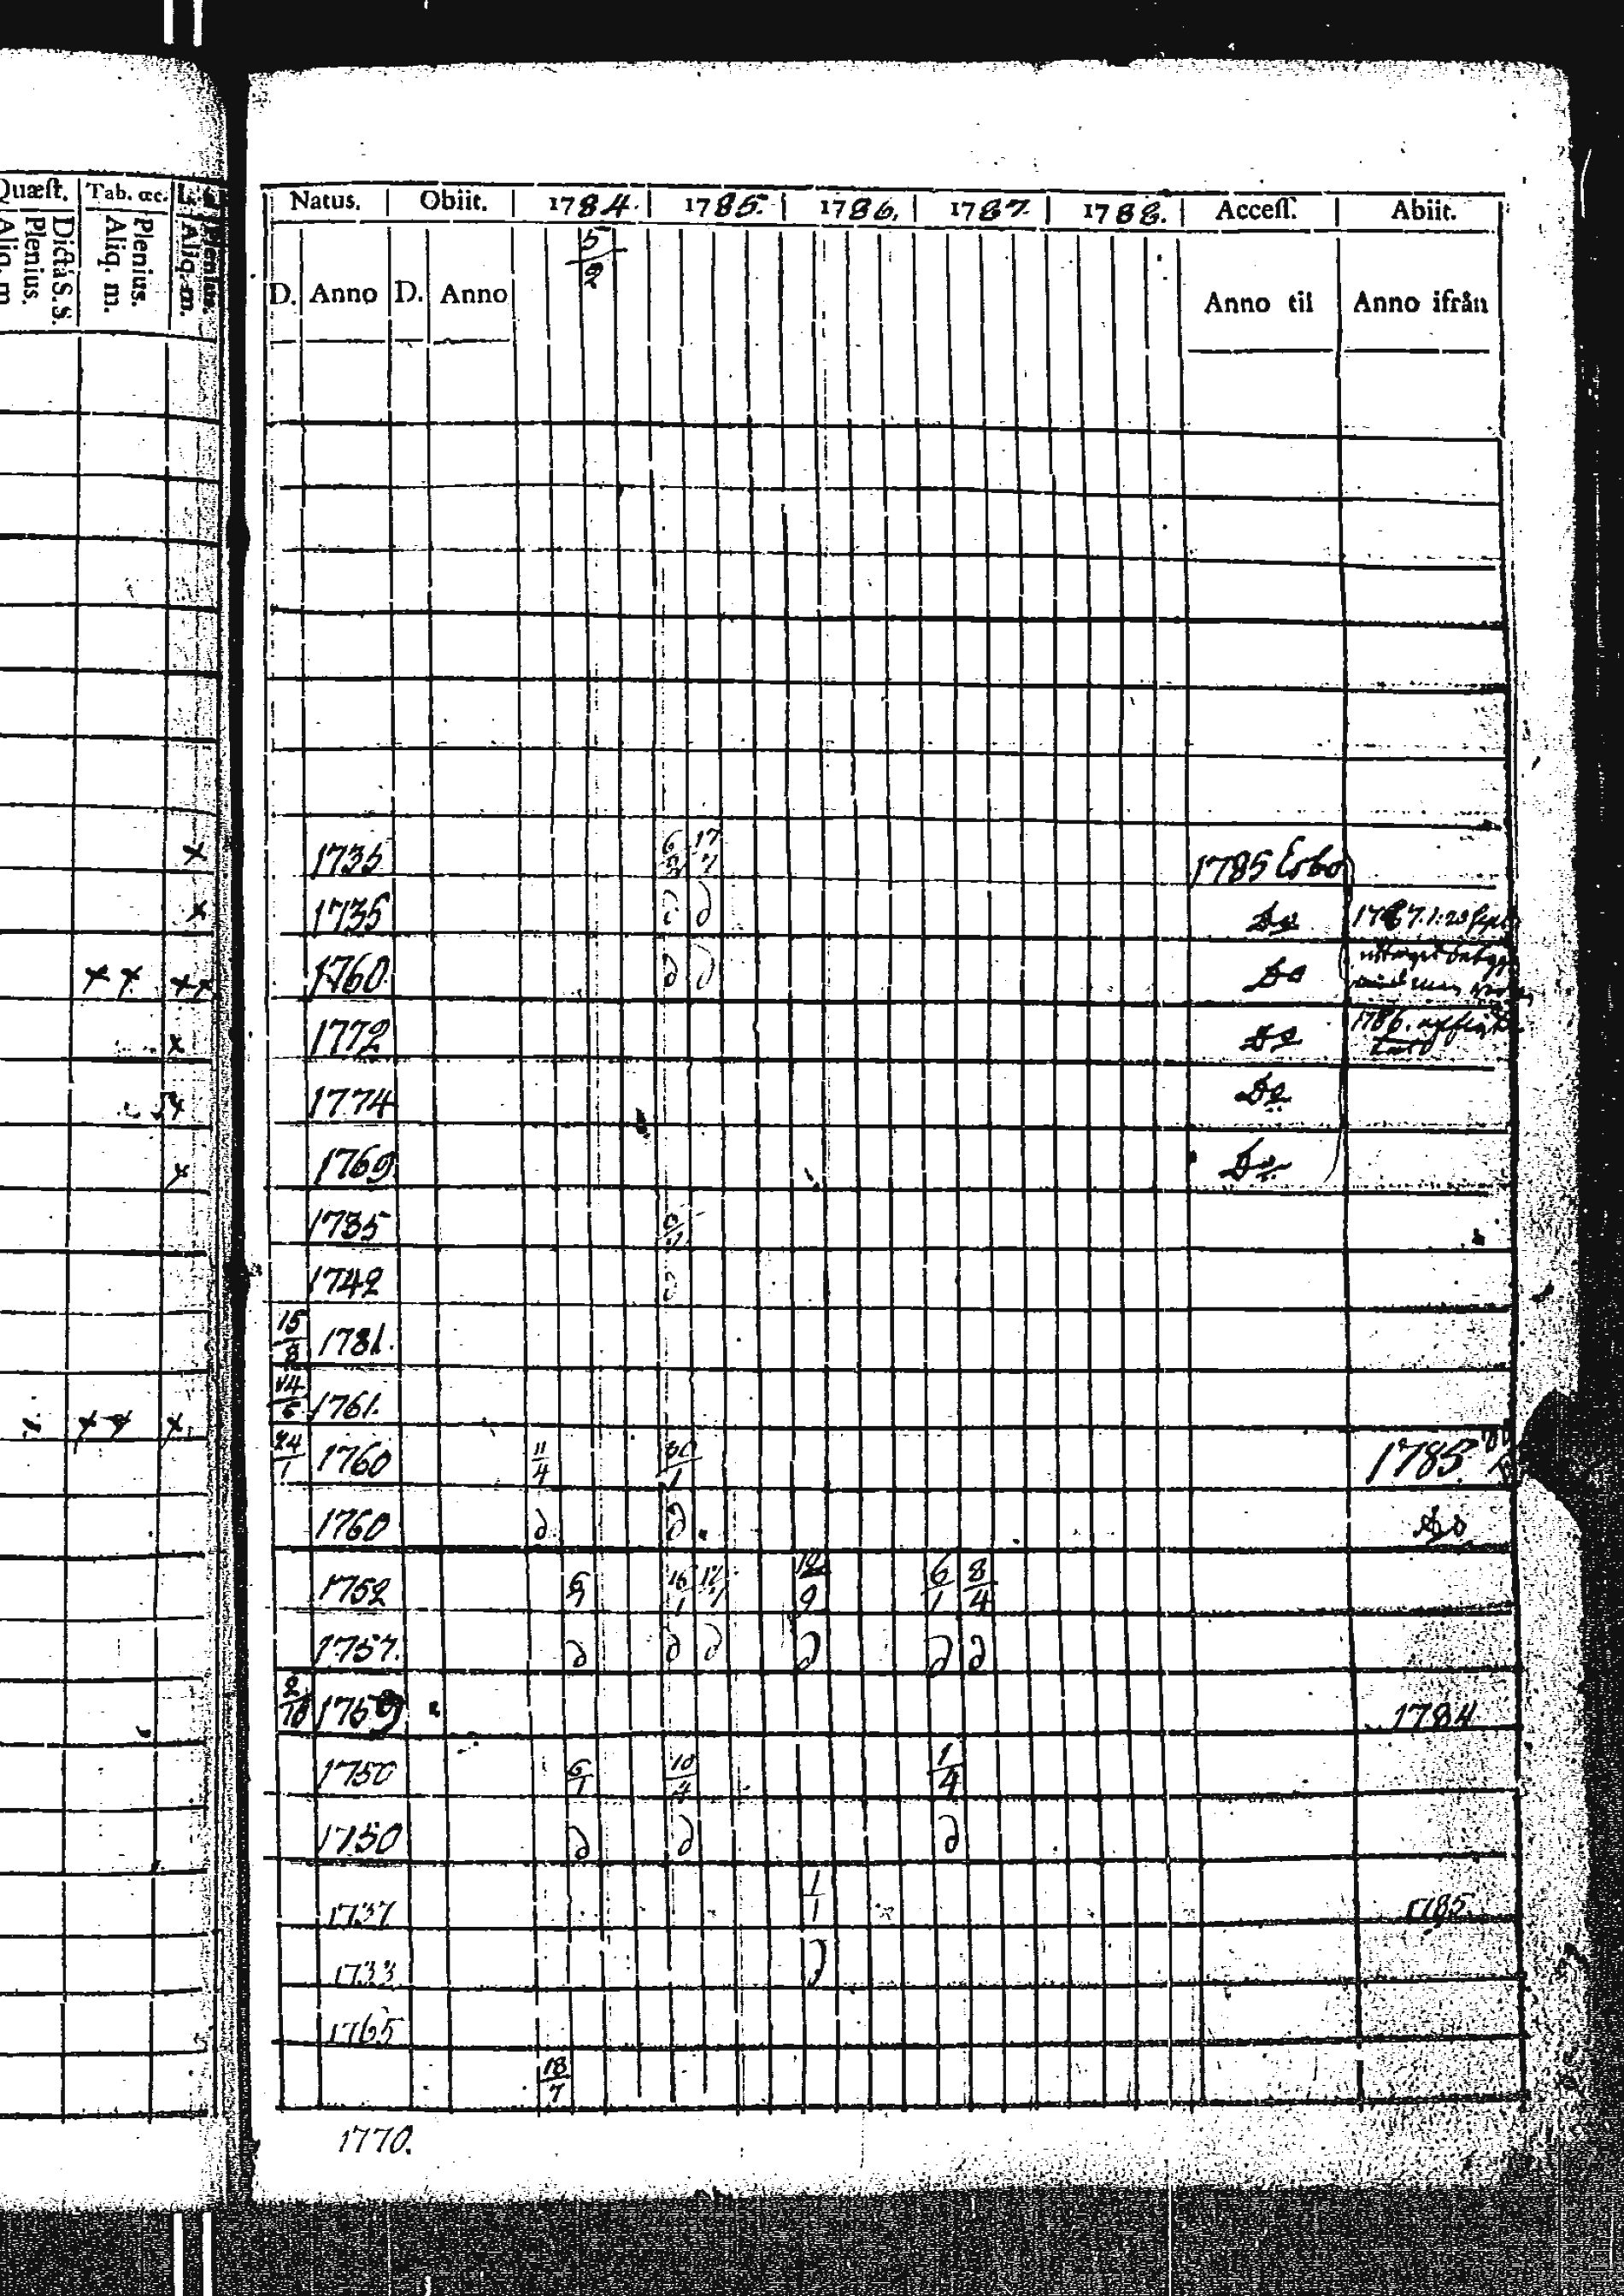 Quæst. Tab. œc.
Dicta S. S.
Plenius.
Aliq. m
Plenius.
Aliq. m.
Plenius.
Aliq. m.
Natus. Obiit. 1784. 1785. 1786. 1787. 1788. Access. Abiit.
5/2
D. Anno D. Anno Anno til Anno ifrån
1735 17/7 1785 Erbo
1735 d Do
1760 d d Do
1772 Do 1786.
1774 Do
1769 Do
1735
1742 d
15/8 1781.
14/6 1761.
24/1 1760 11/4 30/1 1785
1760 d d Do
1752 6/1 16/1 12/9 6/1 8/4
1757. d d d d d d
2/10 1759 1784
1750 6/1 10/4 1/4
1750 d d d
1737 1/1 1785
1733 d
1765
18/7
1770.